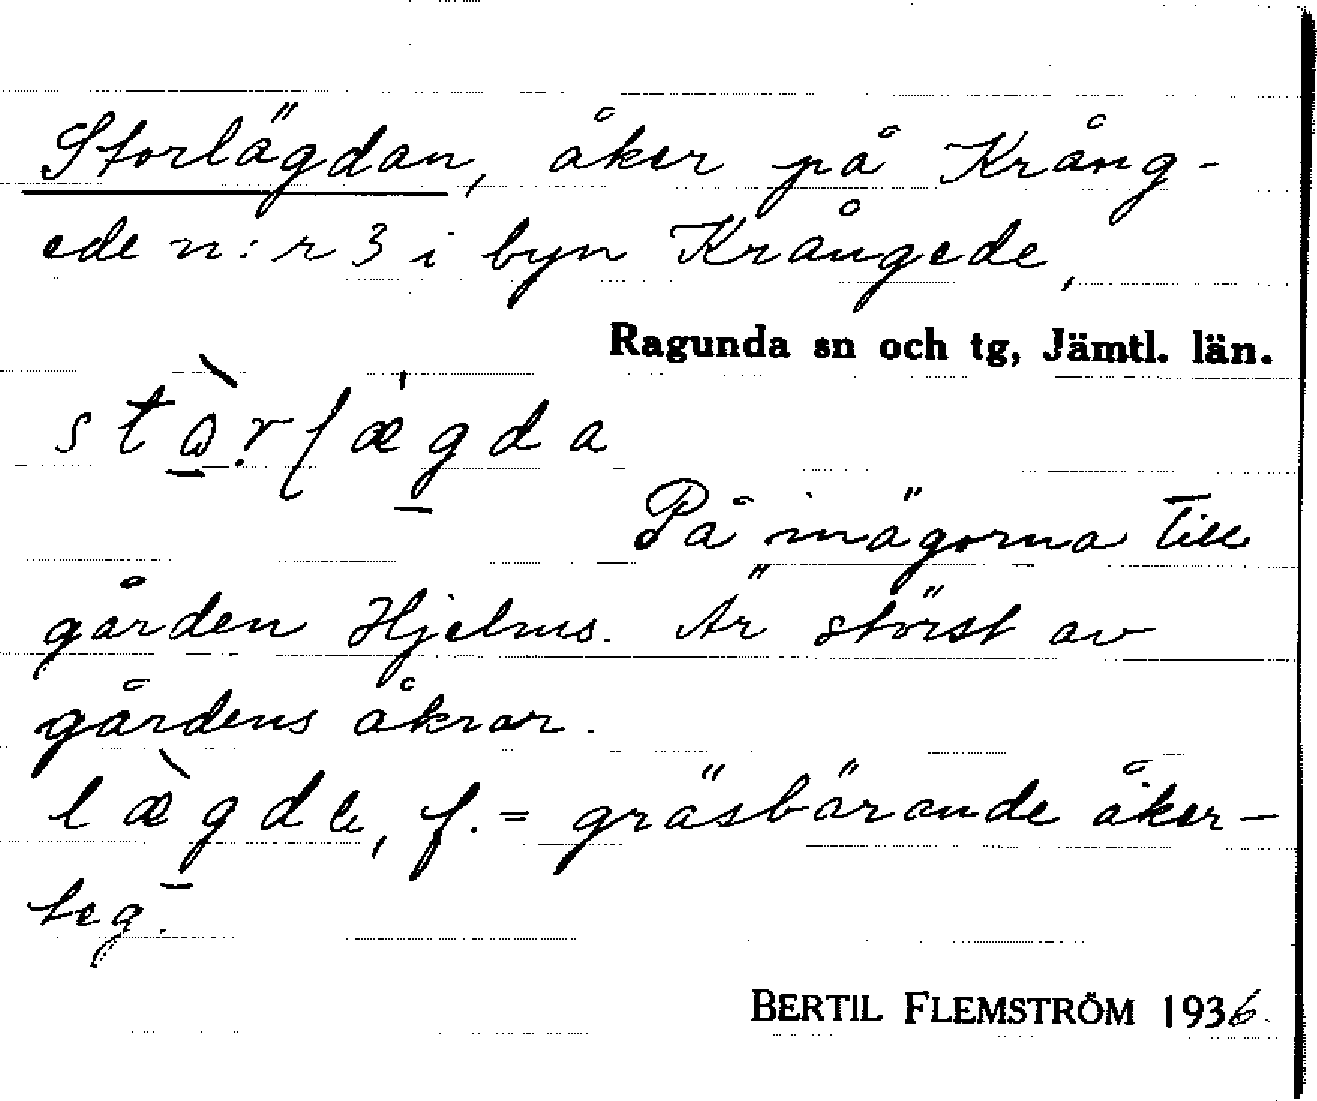 Storlägdan, åker på Krång-
ede n:r 3 i byn Krångede,
Ragunda sn och tg, Jämtl. län.
stò̱.rlæ̱gda
På inägorna till
gården Hjelms. Är störst av
gårdens åkrar.
læ̀gde, f. = gräsbärande åker-
teg.
BERTIL FLEMSTRÖM 1936.